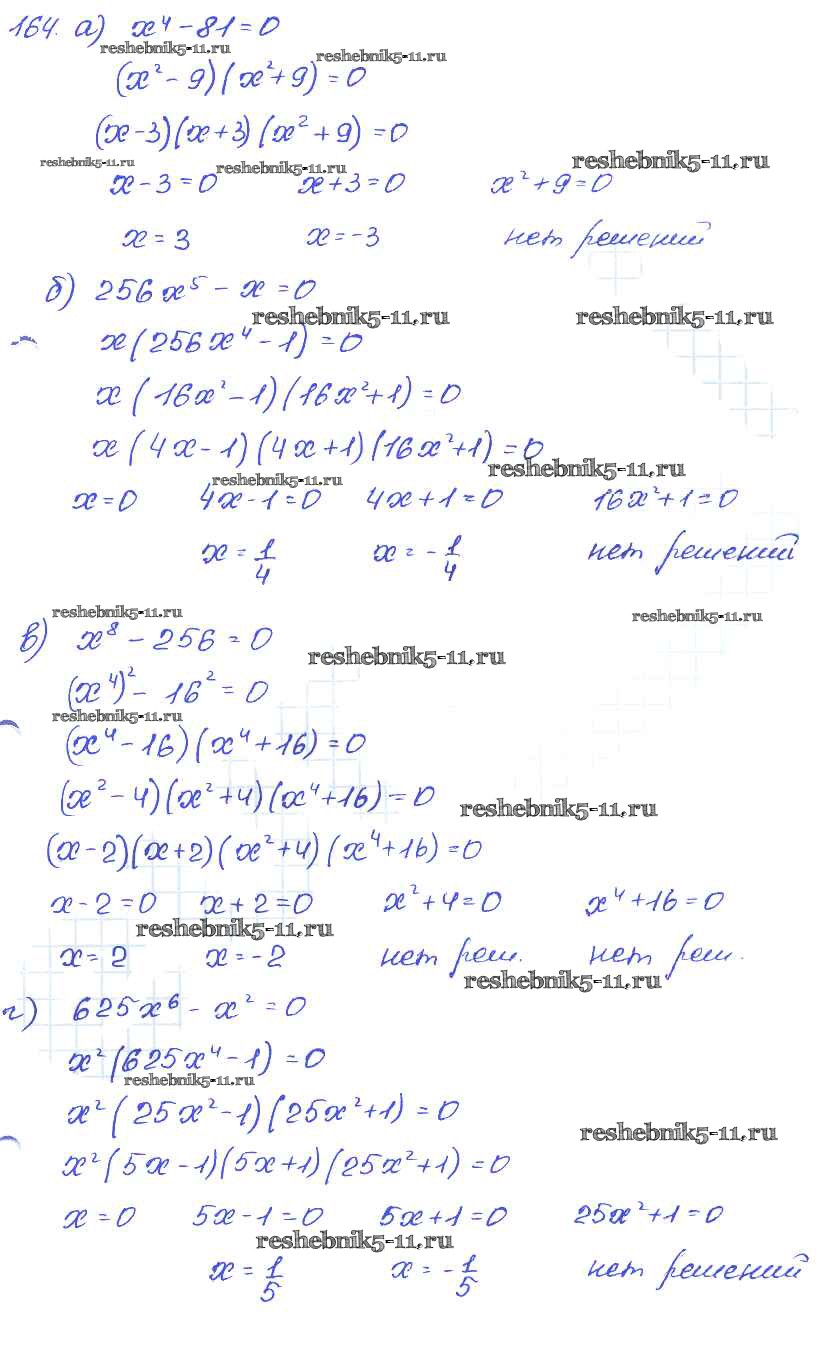 164. а) x⁴ - 81 = 0
reshebnik5-11.ru reshebnik5-11.ru
(x² - 9)(x² + 9) = 0
(x - 3)(x + 3)(x² + 9) = 0
reshebnik5-11.ru reshebnik5-11.ru reshebnik5-11.ru
x - 3 = 0 x + 3 = 0 x² + 9 = 0
x = 3 x = -3 нет решений
б) 256x⁵ - x = 0
reshebnik5-11.ru reshebnik5-11.ru
x(256x⁴ - 1) = 0
x(16x² - 1)(16x² + 1) = 0
x(4x - 1)(4x + 1)(16x² + 1) = 0
reshebnik5-11.ru reshebnik5-11.ru
x = 0 4x - 1 = 0 4x + 1 = 0 16x² + 1 = 0
x = 1/4 x = -1/4 нет решений
reshebnik5-11.ru reshebnik5-11.ru
в) x⁸ - 256 = 0
reshebnik5-11.ru
(x⁴)² - 16² = 0
reshebnik5-11.ru
(x⁴ - 16)(x⁴ + 16) = 0
(x² - 4)(x² + 4)(x⁴ + 16) = 0
reshebnik5-11.ru
(x - 2)(x + 2)(x² + 4)(x⁴ + 16) = 0
x - 2 = 0 x + 2 = 0 x² + 4 = 0 x⁴ + 16 = 0
reshebnik5-11.ru
x = 2 x = -2 нет реш. нет реш.
reshebnik5-11.ru
г) 625x⁶ - x² = 0
x²(625x⁴ - 1) = 0
reshebnik5-11.ru
x²(25x² - 1)(25x² + 1) = 0
reshebnik5-11.ru
x²(5x - 1)(5x + 1)(25x² + 1) = 0
x = 0 5x - 1 = 0 5x + 1 = 0 25x² + 1 = 0
reshebnik5-11.ru
x = 1/5 x = -1/5 нет решений